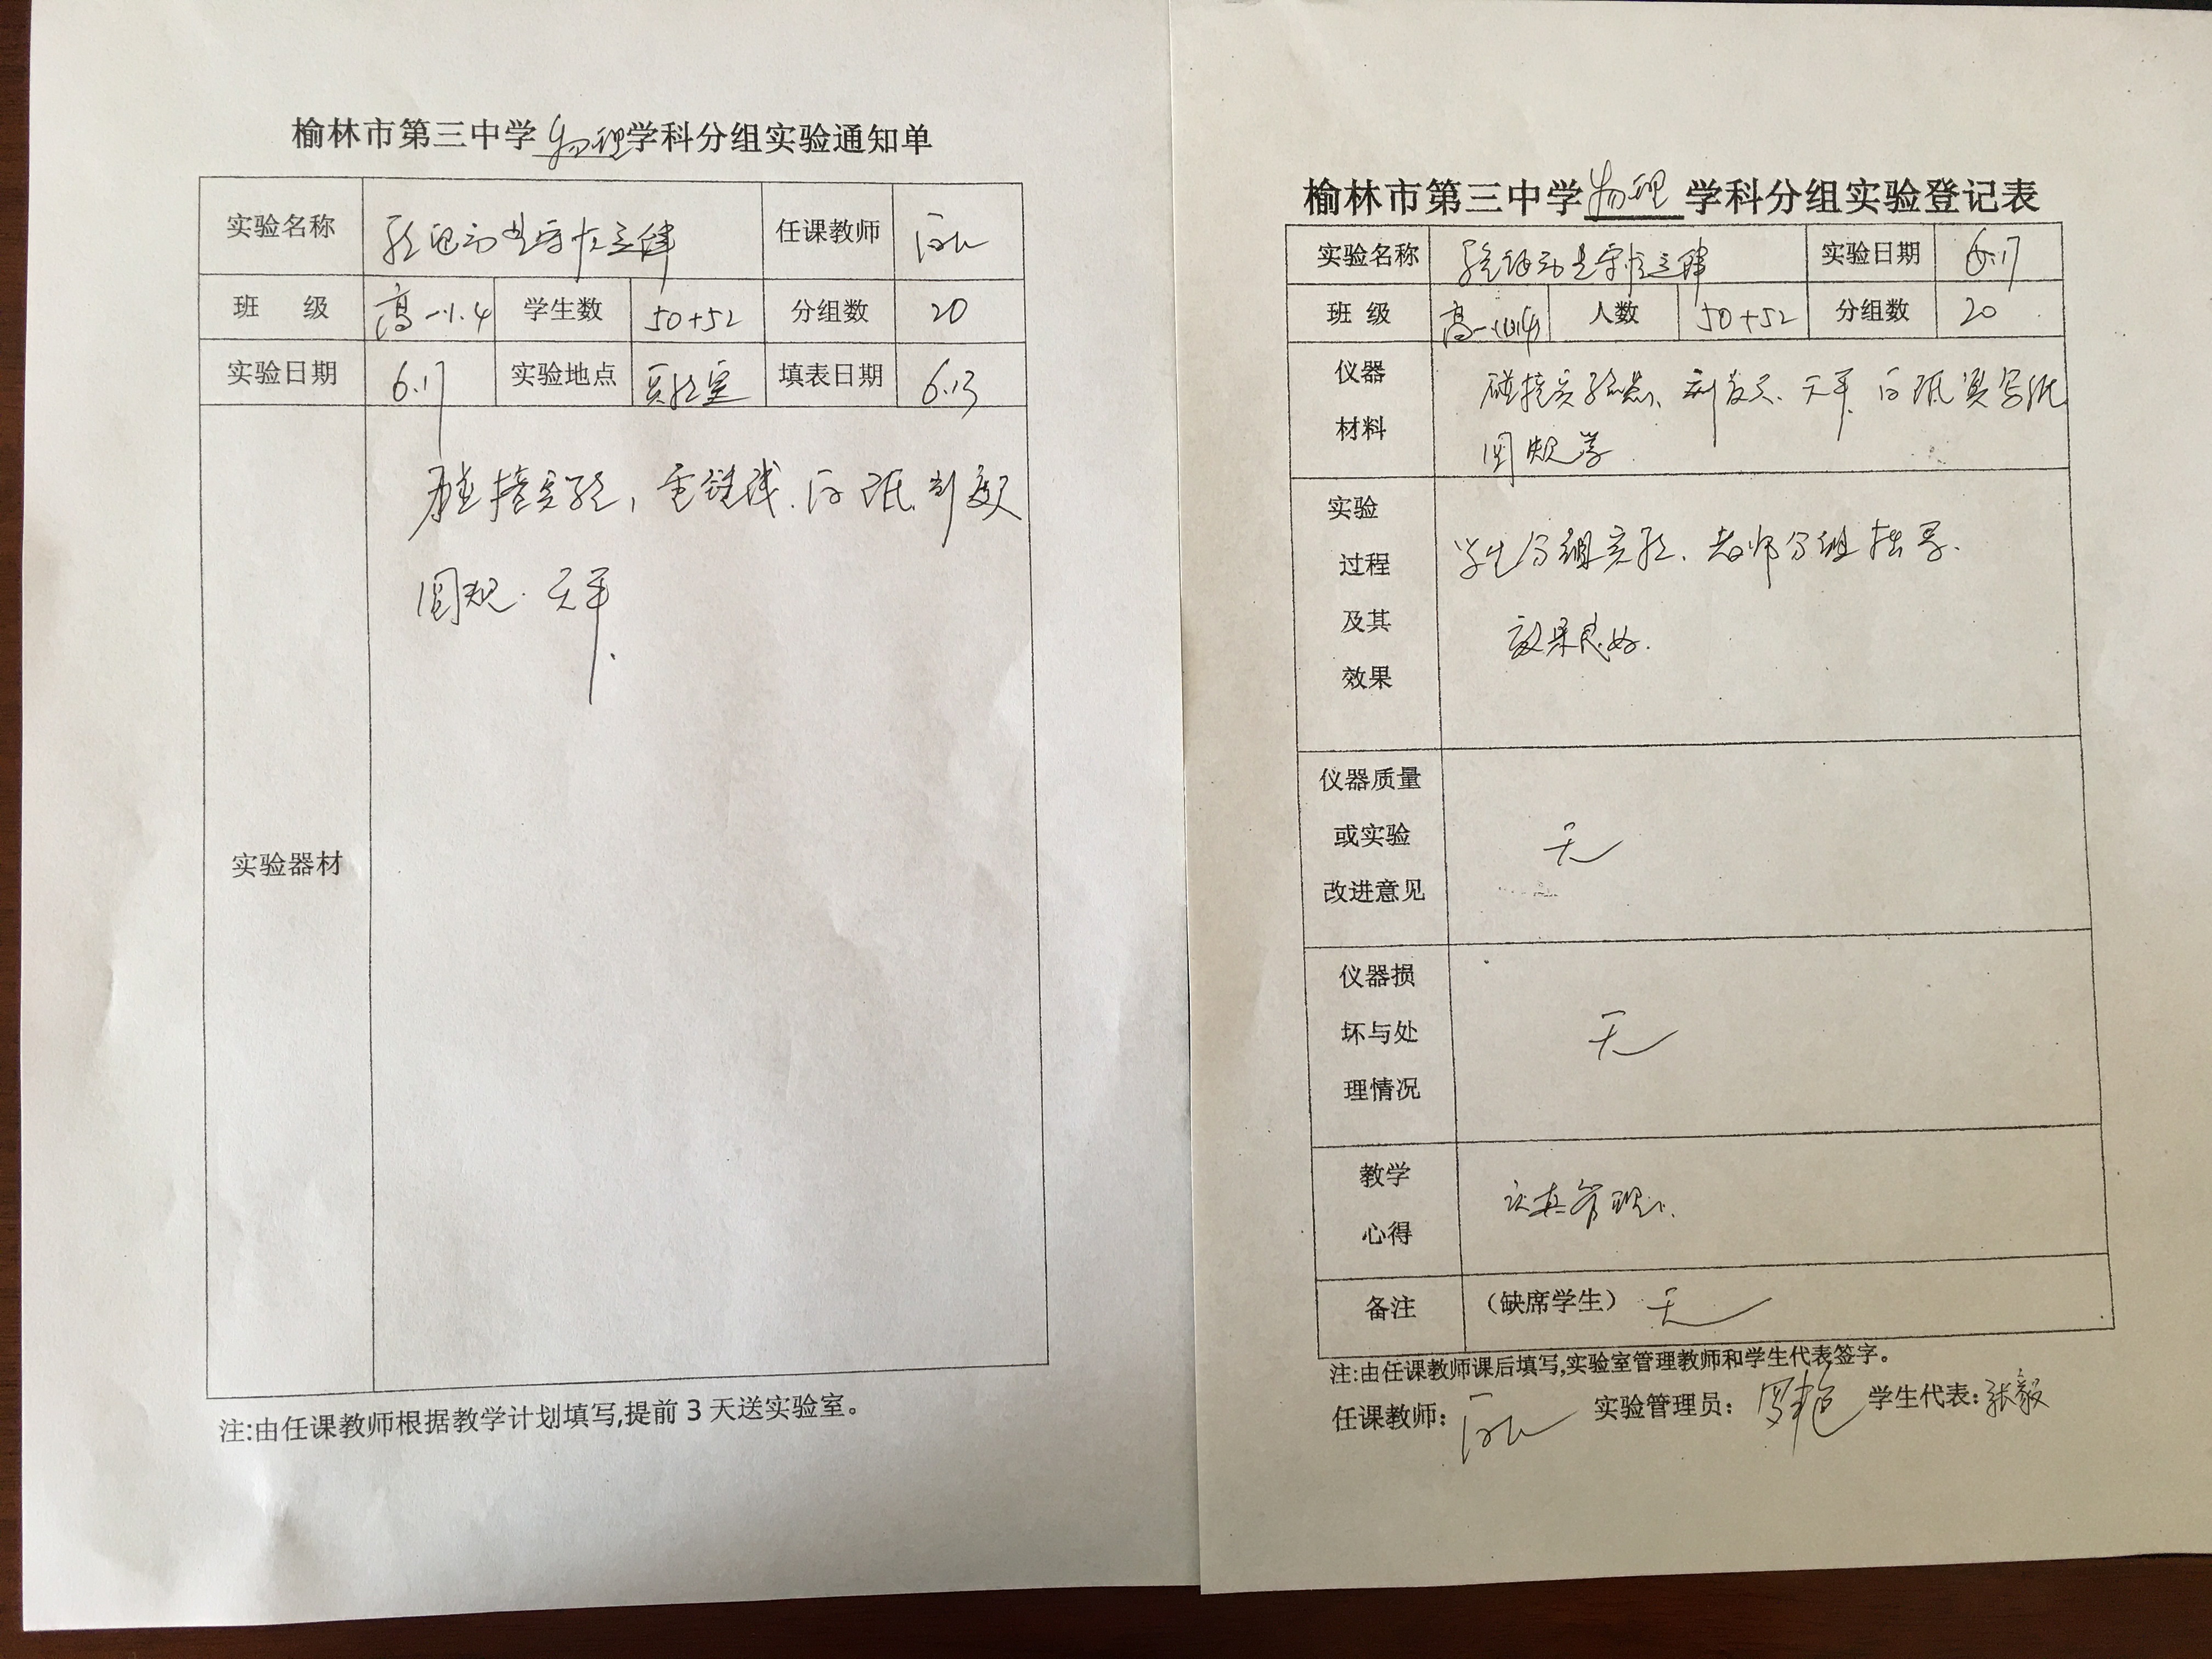 榆林市第三中学物理学科分组实验通知单
实验名称 验证动量守恒定律 任课教师
班 级 高一1.4 学生数 50+52 分组数 20
实验日期 6.17 实验地点 实验室 填表日期 6.13
实验器材 碰撞实验, 重锤线.白纸.刻度尺
圆规.天平.
注:由任课教师根据教学计划填写,提前3天送实验室。
榆林市第三中学物理学科分组实验登记表
实验名称 验证动量守恒定律 实验日期 6.17
班 级 高一(1)(4) 人数 50+52 分组数 20
仪器材料 碰撞实验器、刻度尺、天平、白纸 复写纸
圆规等
实验过程及其效果 学生分组实验、老师分组指导.
效果良好.
仪器质量或实验改进意见 无
仪器损坏与处理情况 无
教学心得 认真管理.
备注 (缺席学生) 无
注:由任课教师课后填写,实验室管理教师和学生代表签字。
任课教师: 实验管理员:罗艳 学生代表:张毅